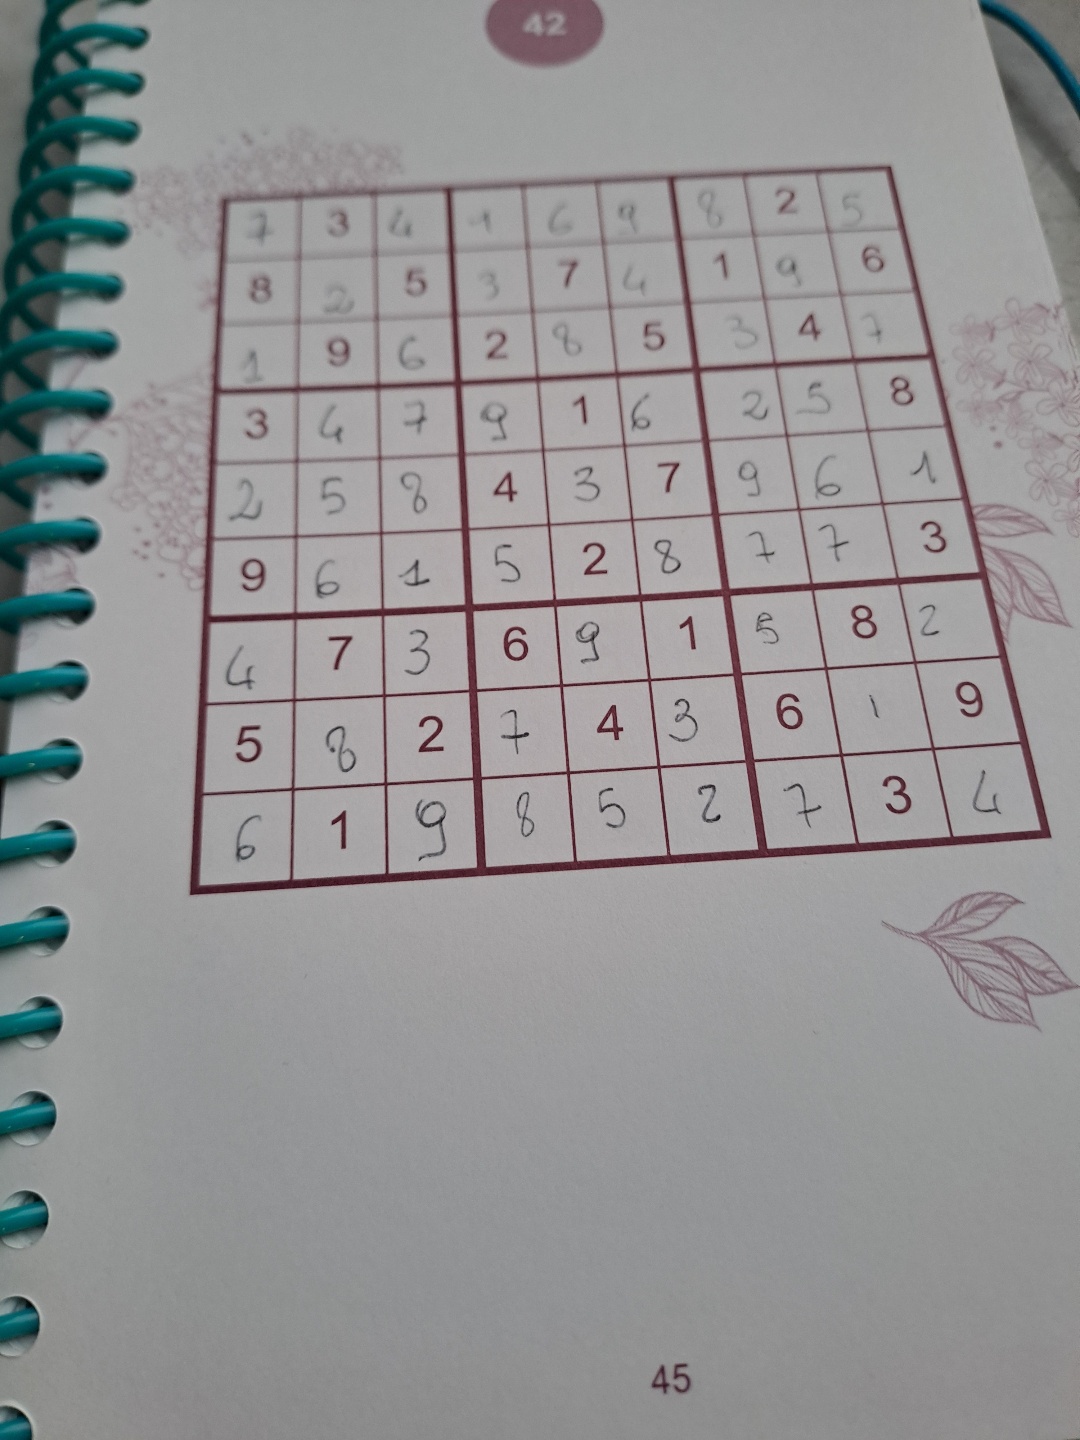 42
7 3 4 1 6 9 8 2 5
8 2 5 3 7 4 1 9 6
1 9 6 2 8 5 3 4 7
3 4 7 9 1 6 2 5 8
2 5 8 4 3 7 9 6 1
9 6 1 5 2 8 7 7 3
4 7 3 6 9 1 5 8 2
5 8 2 7 4 3 6 1 9
6 1 9 8 5 2 7 3 4
45